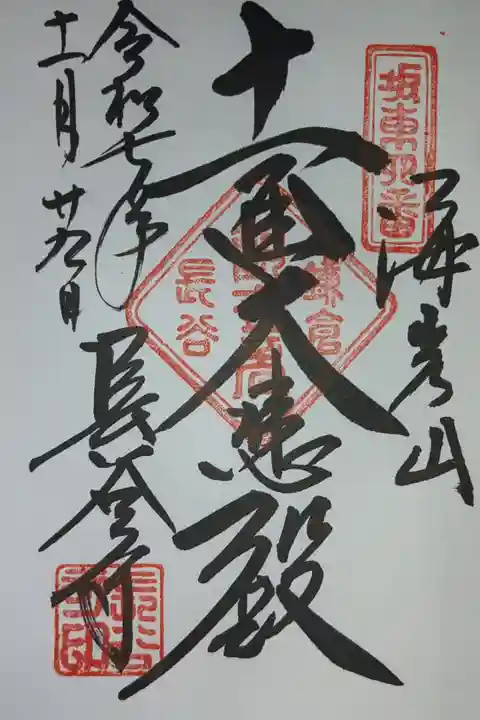 坂東四番
海光山
十一面大悲殿
鎌倉
長谷
令和七年
十一月廿日
長谷寺